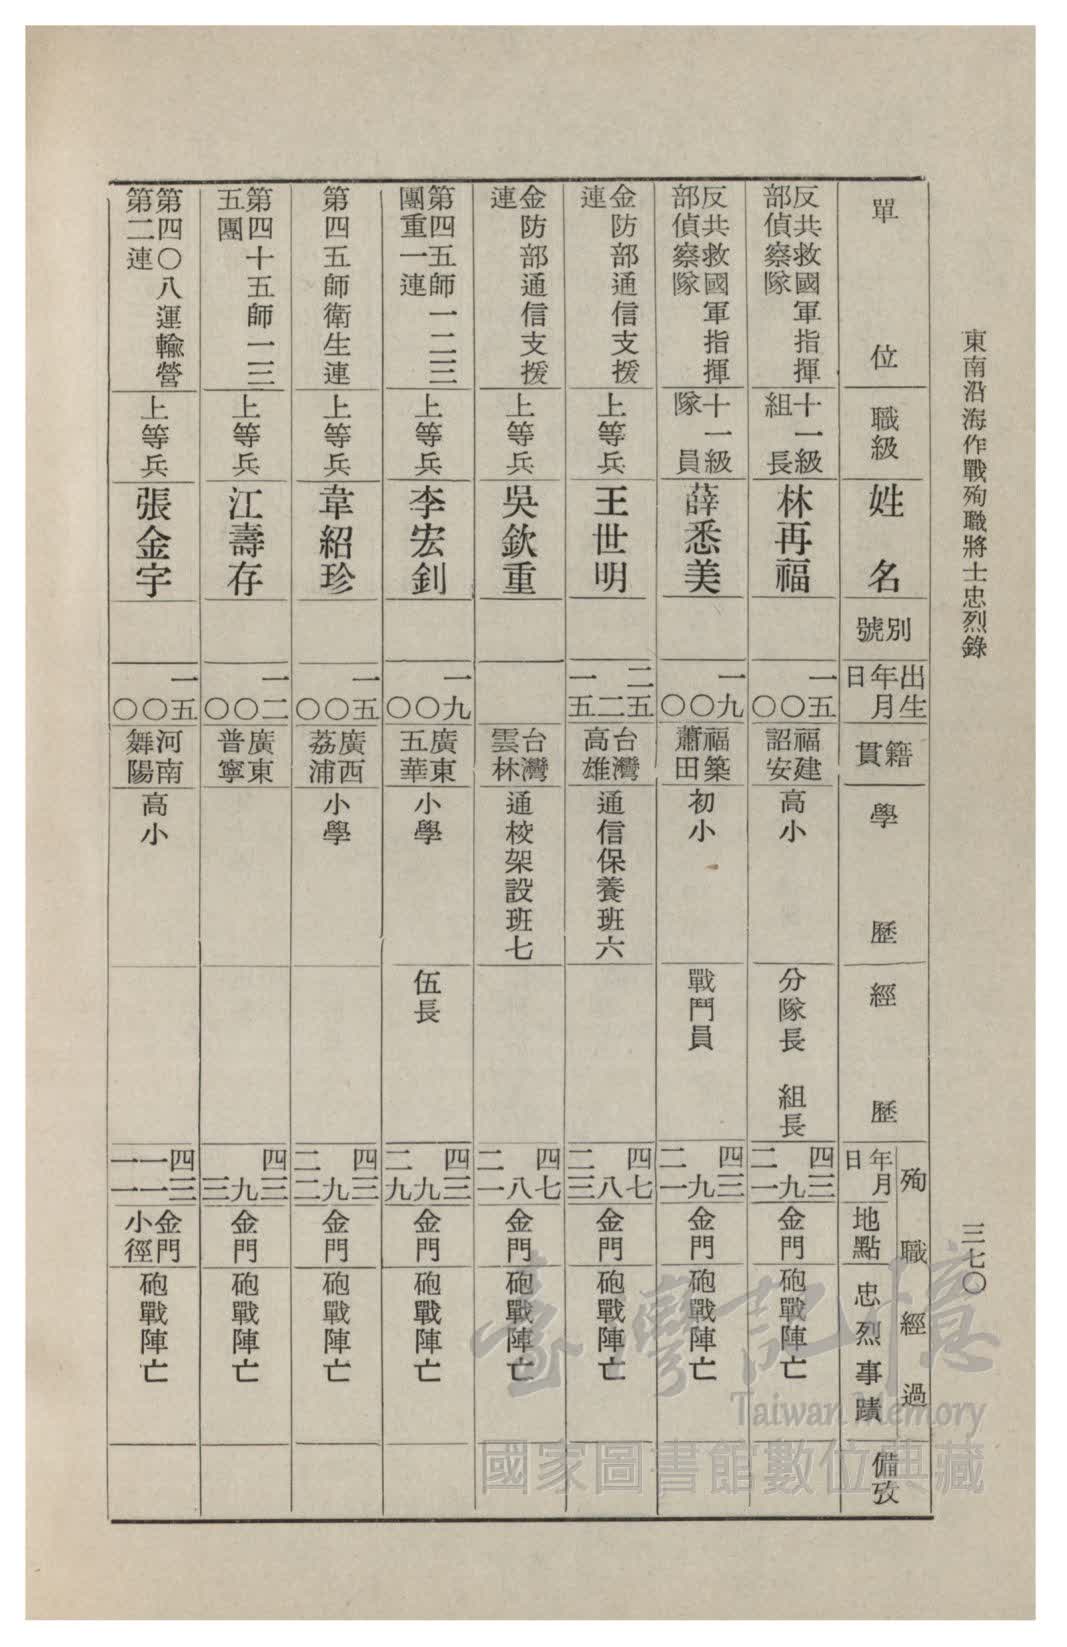 東南沿海作戰殉職將士忠烈錄
三七〇
單位
職級
姓名
別號
出生年月日
籍貫
學歷
經歷
殉職經過
年月日
地點
忠烈事蹟
備攷
反共救國軍指揮
部偵察隊
十一級
組長
林再福
一五
〇〇
福建
詔安
高小
分隊長 組長
四三九
二一
金門
砲戰陣亡
反共救國軍指揮
部偵察隊
十一級
隊員
薛悉美
一九
〇〇
福築
蕭田
初小
戰鬥員
四三九
二一
金門
砲戰陣亡
金防部通信支援
連
上等兵
王世明
二五二
一五
台灣
高雄
通信保養班六
四七八
二三
金門
砲戰陣亡
金防部通信支援
連
上等兵
吳欽重
台灣
雲林
通校架設班七
四七八
二一
金門
砲戰陣亡
第四五師一二三
團重一連
上等兵
李宏釗
一九
〇〇
廣東
五華
小學
伍長
四三九
二九
金門
砲戰陣亡
第四五師衛生連
上等兵
韋紹珍
一五
〇〇
廣西
荔浦
小學
四三九
二二
金門
砲戰陣亡
第四十五師一三
五團
上等兵
江壽存
一二
〇〇
廣東
普寧
四三九
三
金門
砲戰陣亡
第四〇八運輸營
第二連
上等兵
張金宇
一五
〇〇
河南
舞陽
高小
四三一一
一一
金門
小徑
砲戰陣亡
臺灣記憶
Taiwan Memory
國家圖書館數位典藏